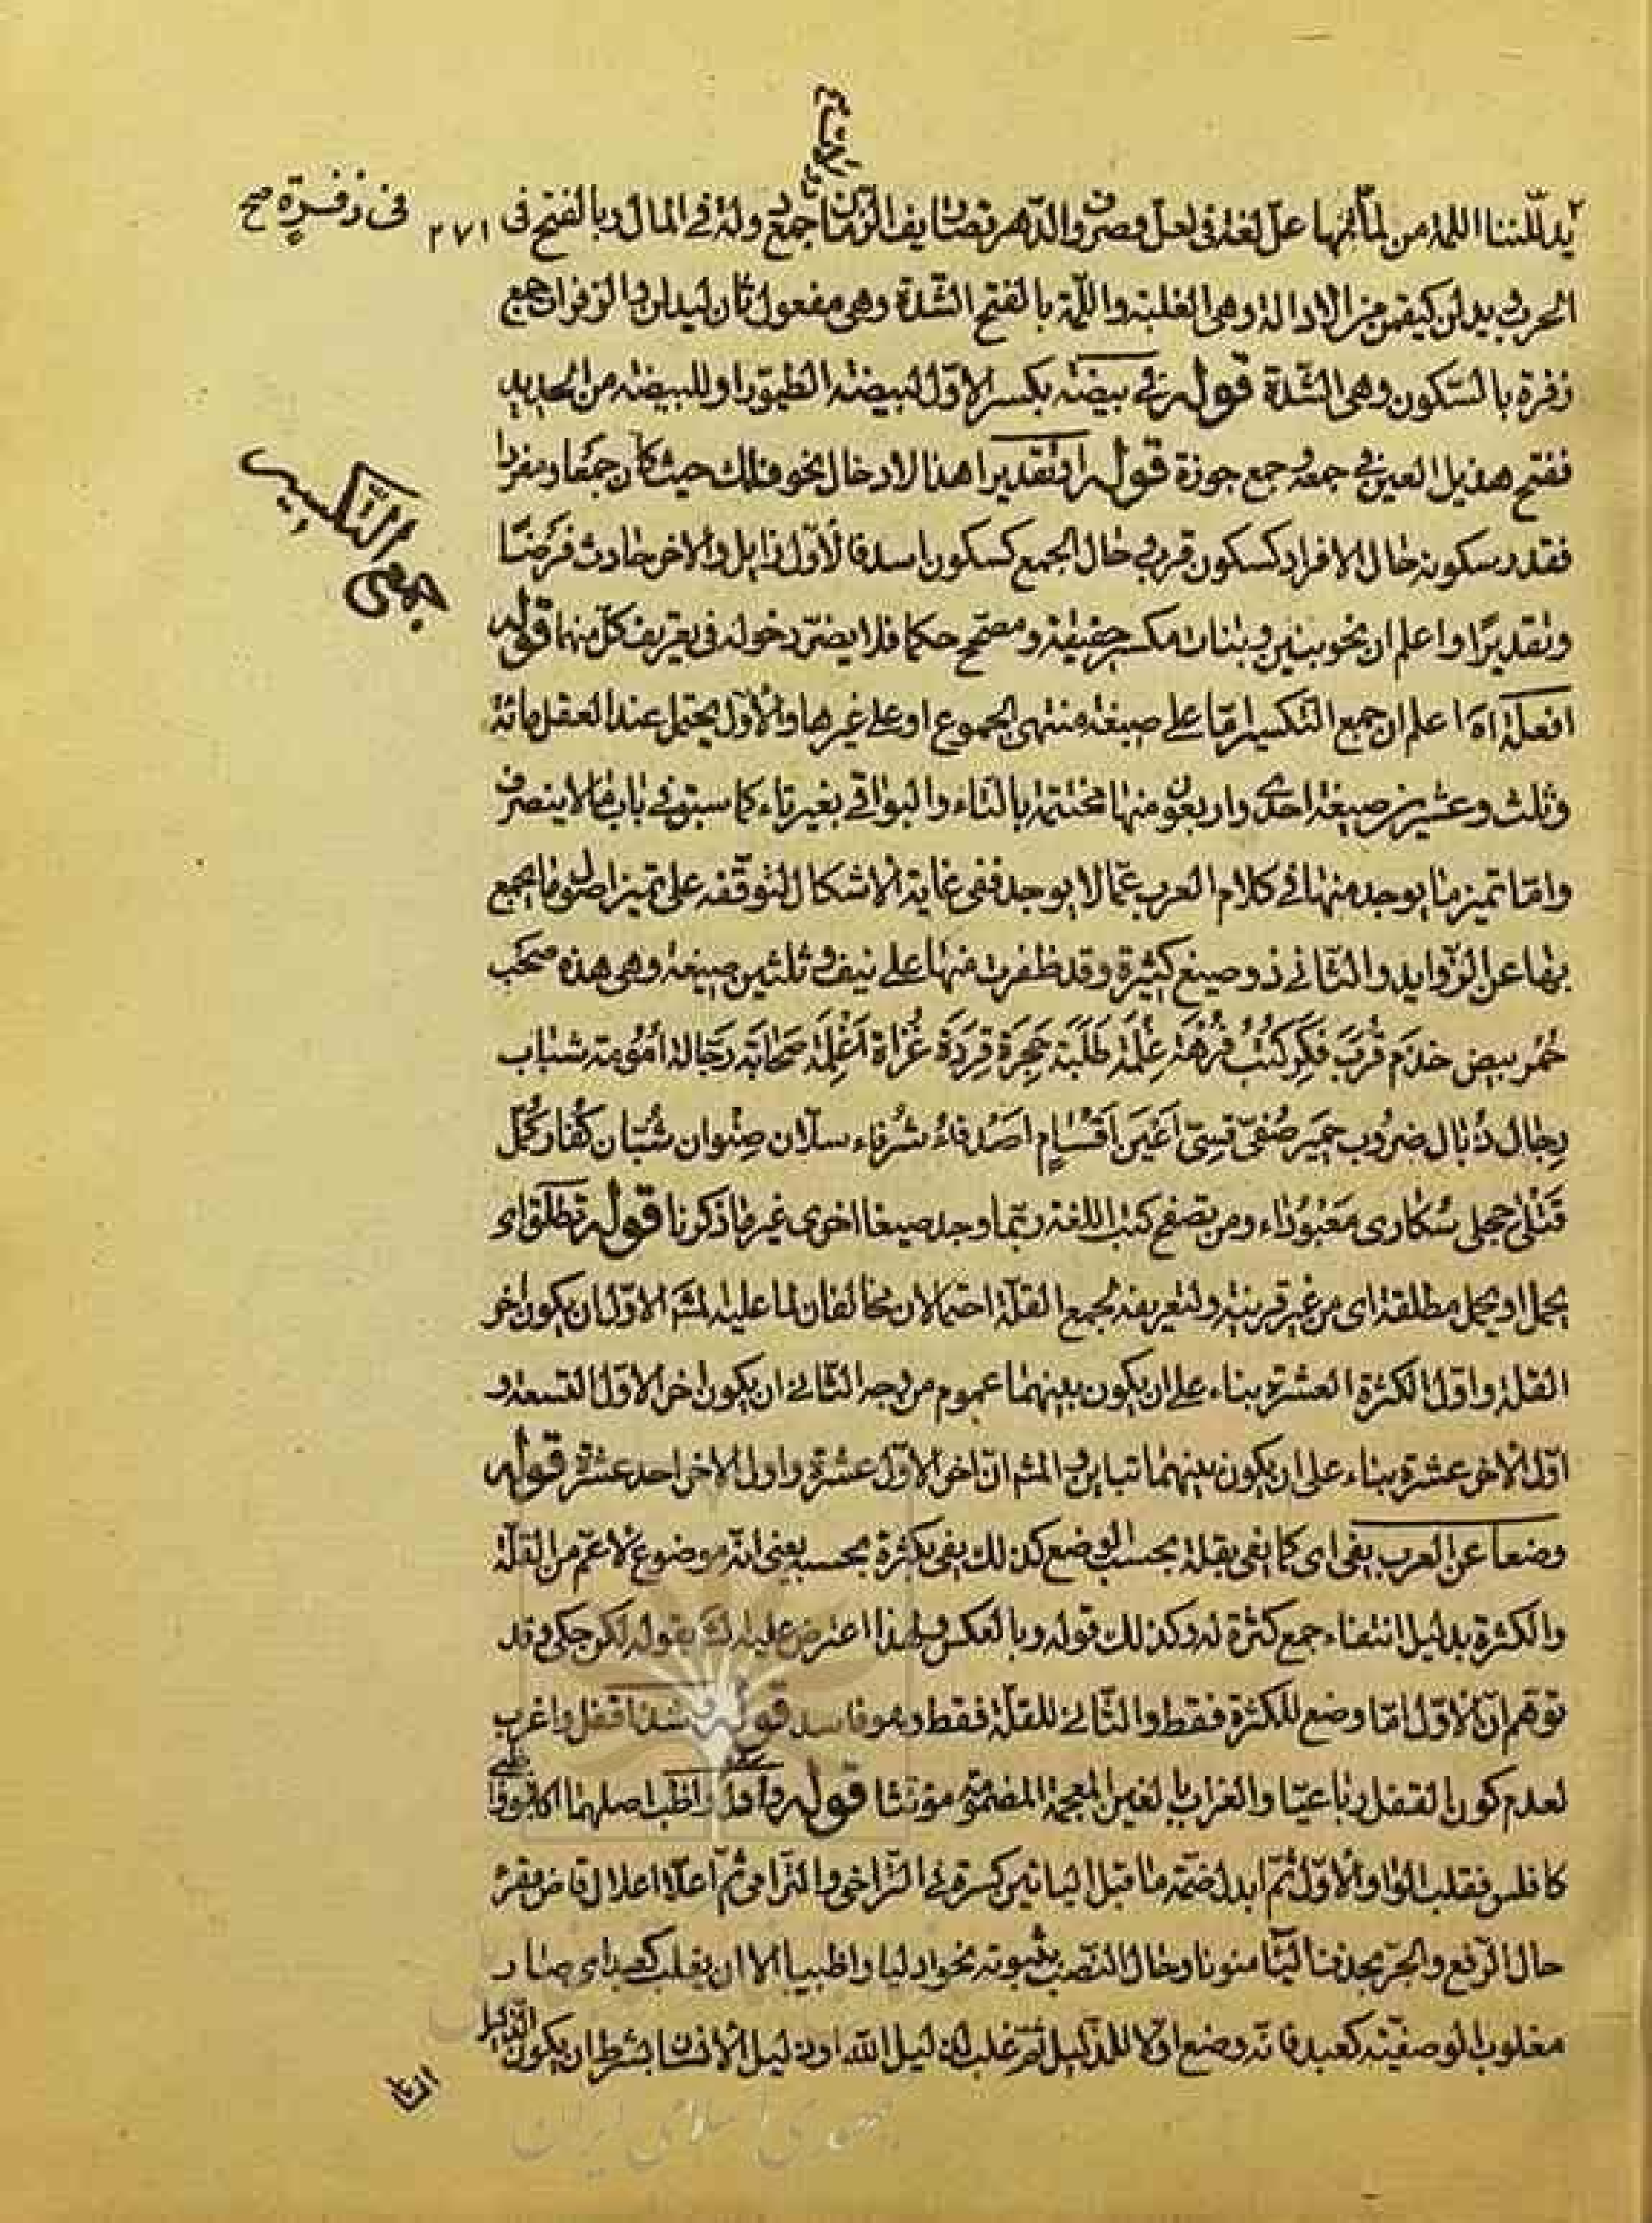 يدلننا اللمة من لماتها على لغة فى لعل وصروف الدهر تصاريف الزمان جمع دولة فى المال وبالفتح فى
٢٧١
فى زفرة صح
الحرب يدلن كيفهن من الادالة وهى الغلبة واللمة بالفتح الشدة وهى مفعول ثان ليدلن والزفرات جمع
زفرة بالسكون وهى الشدة قوله فى بيضة بكسر الاول لبيضة الطيور او للبيضة من الحديد
ففتح هذيل العين فى جمعه جمع جوزة قوله او تقديرا هذا لادخال نحو فلك حيث كان جمعا ومفردا
جمع التكسير
فقدر سكونه حال الافراد كسكون قرب وحال الجمع كسكون اسد فالاول زايل والاخر حادث فرضا
وتقديرا واعلم ان نحو بنين وبنات مكسر حقيقة ومصحح حكما فلا يضر دخوله فى تعريف كل منهما قوله
افعلة اه اعلم ان جمع التكسير اما على صيغة منتهى الجموع او على غيرها والاول يحتمل عند العقل مائة
وثلث وعشرين صيغة احدى واربعون منها مختتمة بالتاء والبواقى بغير تاء كما سبق فى باب ما لا ينصرف
واما تميز ما يوجد منها فى كلام العرب عما لا يوجد ففى غاية الاشكال لتوقفه على تميز اصول ما يجمع
بها عن الزوايد والثانى ذو صيغ كثيرة وقد ظفرت منها على نيف وثلثين صيغة وهى هذه صحب
حُمْر بيض خدَم قُرَب فِكَر كُتُب فُرْهَة غِلْمَة طَلَبَة حِجرة قِرَدَة غُزاة اَغْلِمَة صحابة رجالة امومة شباب
رجال ذبال ضروب حمير صُفىّ قِسىّ اَعْيُن اَقْسام اصدقاء شُرفاء سلان صِنْوان شُبّان كفّار كُمّل
قَتْلىٰ حجلى سُكارى مَعْبُوداء ومن تصفح كتب اللغة ربما وجد صيغا اخرى غير ما ذكرنا قوله تطلق اى
يحمل او يحمل مطلقة اى من غير قرينة ولتعريفه لجمع القلة احتمالان مخالفان لما عليه لمشه الاول ان يكون اخر
القلة واول الكثرة العشرة بناء على ان يكون بينهما عموم من وجه الثانى ان يكون اخر الاول التسعة و
اول الاخر عشرة بناء على ان يكون بينهما تباين والمشه ان اخر الاول عشرة واول الاخر احد عشرة قوله
وضعا عن العرب يفى اى كما يفى بقلة بحسب الوضع كذلك يفى بكثرة بحسبه يعنى انه موضوع لاعم من القلة
والكثرة بدليل انتفاء جمع كثرة له وكذلك قوله وبالعكس ولهذا اعترض عليه بقوله لكن حكى وقد
توهم ان الاول انما وضع للكثرة فقط والثانى للقلة فقط وهو فاسد قوله وشذ اقفل واغرب
لعدم كون القفل رباعيا والغراب بالغين المعجمة المضمومة مؤنثا قوله واظب اصلهما
كافلس فقلب الواو الاول ثم ابدل ضمة ما قبل اليائين كسرة فى التراخى والترامى ثم اعلا اعلال قاض
حال الرفع والجر بحذف اليا منونا وحال النصب بثبوته نحو ادليا واظبيا الا ان يغلب كعبد اى صار
مغلوب الوصفية كعبد فانه وضع اولا للذليل ثم غلب لذليل الله او ذليل الانسان بشرط ان يكون الذليل